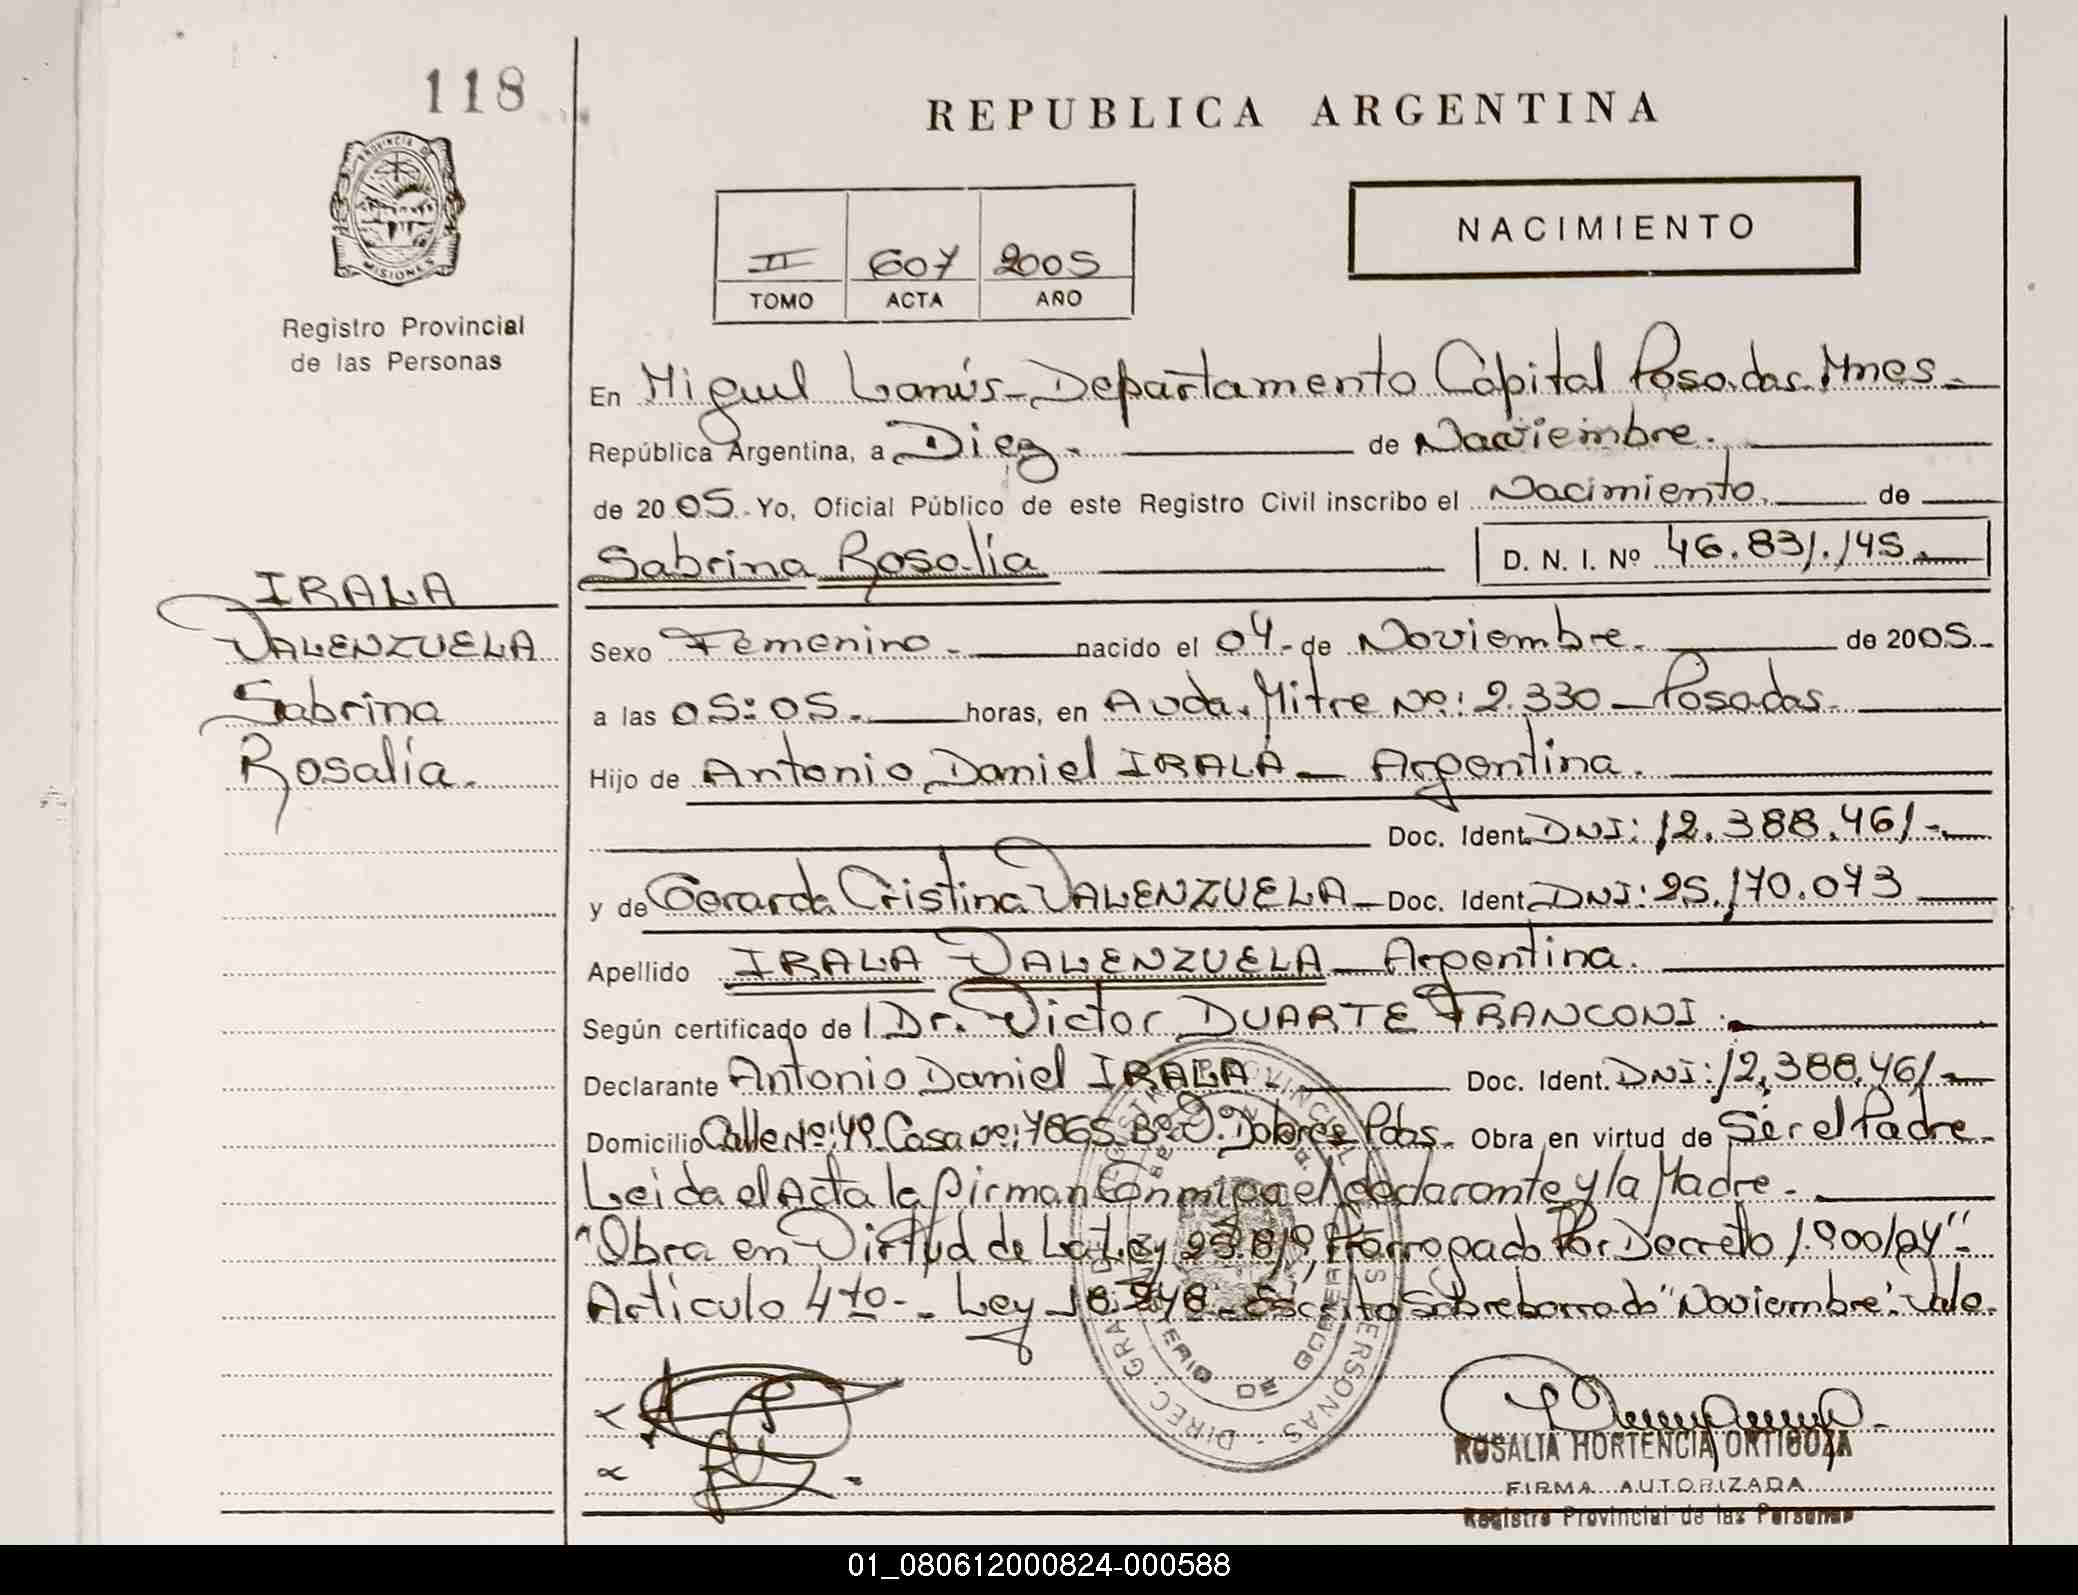 118
REPUBLICA ARGENTINA
PROVINCIA DE
MISIONES
Registro Provincial
de las Personas
NACIMIENTO
II 607 2005
TOMO ACTA AÑO
En Miguel Lanús - Departamento Capital Posadas. Mnes -
República Argentina, a Diez - de Noviembre.
de 2005. Yo, Oficial Público de este Registro Civil inscribo el Nacimiento. de
Sabrina Rosalia D. N. I. Nº 46.831.145.
IRALA
VALENZUELA
Sabrina
Rosalía.
Sexo Femenino - nacido el 04 - de Noviembre. de 2005 -
a las 05:05. horas, en Avda. Mitre Nº: 2.330 - Posadas.
Hijo de Antonio Daniel IRALA - Argentina.
Doc. Ident. DNI: 12.388.461 -
y de Gerarda Cristina VALENZUELA - Doc. Ident. DNI: 25.170.073
Apellido IRALA VALENZUELA - Argentina.
Según certificado de Dr. Victor DUARTE FRANCONI.
Declarante Antonio Daniel IRALA - Doc. Ident. DNI: 12.388.461 -
Domicilio Calle Nº: 49. Casa Nº: 7865 Bº. Dolores Pdas. Obra en virtud de Ser el Padre -
Leida el Acta la firman Conmigo el declarante y la Madre -
"Obra en Virtud de La Ley 25.819, Prorrogado Por Decreto 1.900/04" -
Articulo 4to - Ley 18.248 - Escrito Sobreborrado "Noviembre". Vale.
ROSALIA HORTENCIA ORTIGOZA
FIRMA AUTORIZADA
Registro Provincial de las Personas
01_080612000824-000588